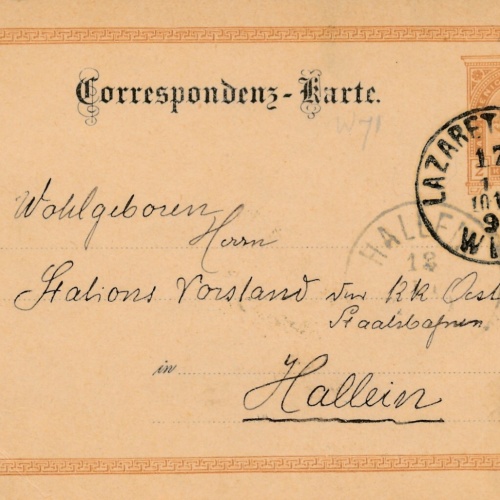 Correspondenz-Karte.
W71
LAZARET
17
1
9
WI
HALLEIN
18
Wohlgeboren
Herrn
Stations Vorstand der KK Oest
Staatsbahnen
in
Hallein